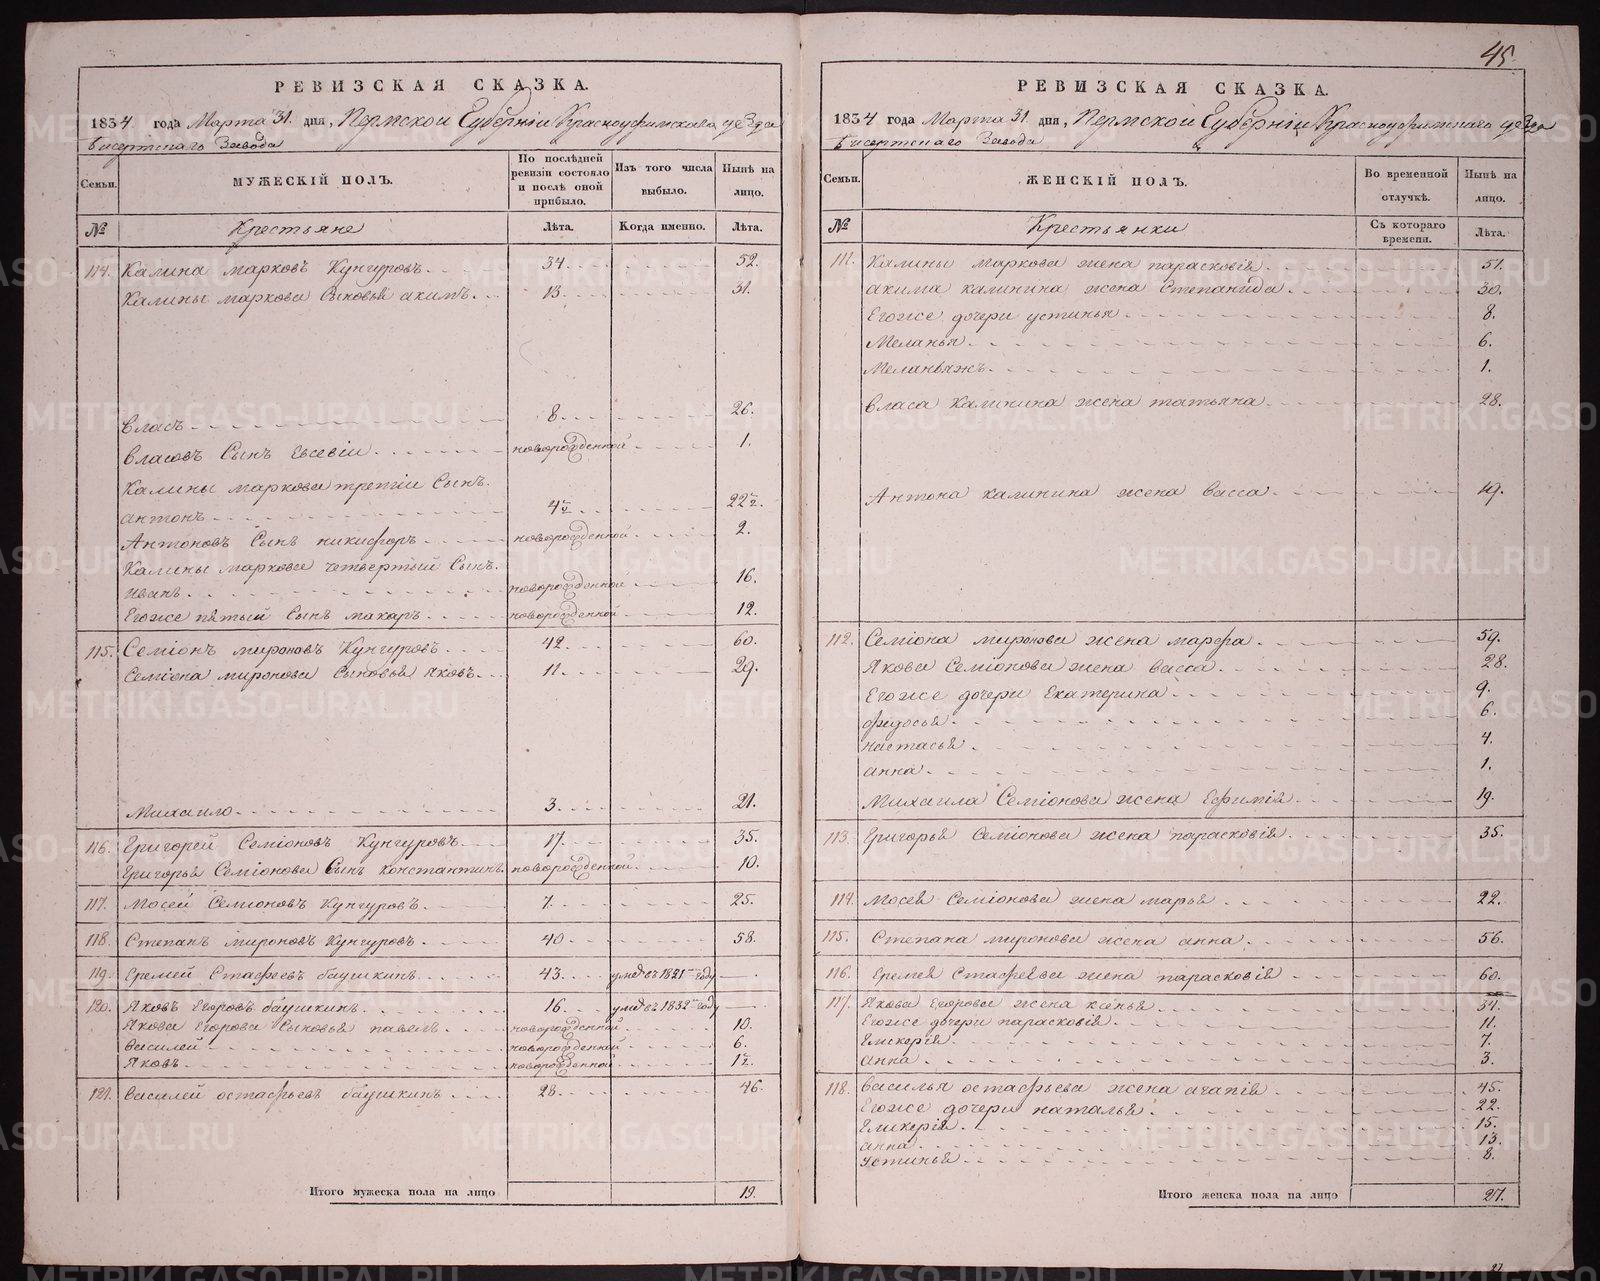 45.
РЕВИЗСКАЯ СКАЗКА.
1834 года Марта 31. дня, Пермской Губерніи Красноуфимскаго уезда
Бисертскаго Завода
Семьи.
МУЖЕСКІЙ ПОЛЪ.
По послѣдней ревизіи состояло и послѣ оной прибыло.
Изъ того числа выбыло.
Нынѣ на лицо.
№
Крестьяне
Лѣта.
Когда именно.
Лѣта.
114. Калина марковъ Кунгуровъ 34. 52.
Калины маркова Сыновья акимъ 13. 31.
власъ 8. 26.
власовъ Сынъ Евсевіи новорожденной 1.
Калины маркова третіи Сынъ.
антонъ 4½. 22½.
Антоновъ Сынъ никифоръ новорожденной 2.
Калины маркова четвертый Сынъ.
иванъ новорожденной 16.
Егоже пятый Сынъ макаръ новорожденной 12.
115. Семіонъ мироновъ Кунгуровъ 42. 60.
Семіона миронова Сыновья яковъ 11. 29.
Михаило 3. 21.
116. Григорей Семіоновъ Кунгуровъ 17. 35.
Григорья Семіонова Сынъ константинъ новорожденной 10.
117. Мосей Семіоновъ Кунгуровъ 7. 25.
118. Степанъ мироновъ Кунгуровъ 40. 58.
119. Еремей Стафеевъ баушкинъ 43. умре въ 1821 году
120. Яковъ Егоровъ баушкинъ 16. умре въ 1832 году
Якова Егорова Сыновья павелъ новорожденной 10.
василей новорожденной 6.
яковъ новорожденной 1½.
121. василей остафьевъ баушкинъ 28. 46.
Итого мужеска пола на лицо 19.
РЕВИЗСКАЯ СКАЗКА.
1834 года Марта 31 дня, Пермской Губерніи Красноуфимскаго уезда
Бисертскаго Завода
Семьи.
ЖЕНСКІЙ ПОЛЪ.
Во временной отлучкѣ.
Нынѣ на лицо.
№
Крестьянки
Съ котораго времени.
Лѣта.
111. Калины маркова жена парасковія 51.
акима калинина жена Степанида 30.
Егоже дочери устинья 8.
Меланья 6.
1.
власа Калинина жена татьяна 28.
Антона калинина жена васса 19.
112. Семіона миронова жена марфа 59.
Якова Семіонова жена васса 28.
Егоже дочери Екатерина 9.
федосья 6.
настасья 4.
анна 1.
Михаила Семіонова жена Ефимія 19.
113. Григорья Семіонова жена парасковія 35.
114. мосея Семіонова жена марья 22.
115. Степана миронова жена анна 56.
116. Еремея Стафеева жена парасковія 60.
117. Якова Егорова жена ксенья 34.
Егоже дочери парасковія 11.
Гликерія 7.
анна 3.
118. василья остафьева жена агапія 45.
Егоже дочери наталья 22.
Гликерія 15.
анна 13.
устинья 8.
Итого женска пола на лицо 27.